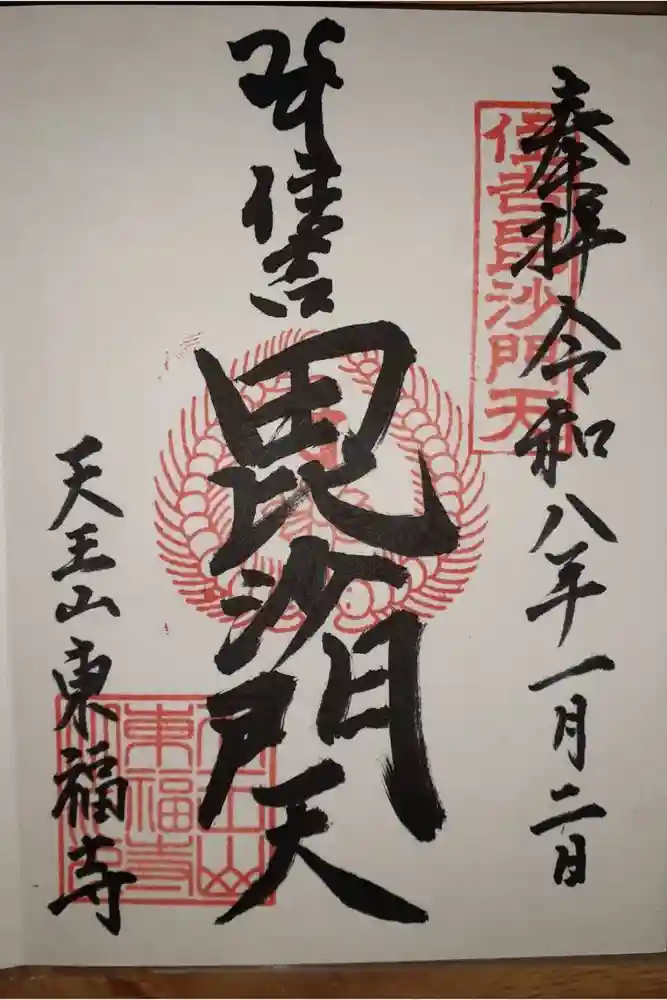 奉拝 令和八年一月二日
住吉毘沙門天
住吉
毘沙門天
天王山東福寺
天王山
東福寺